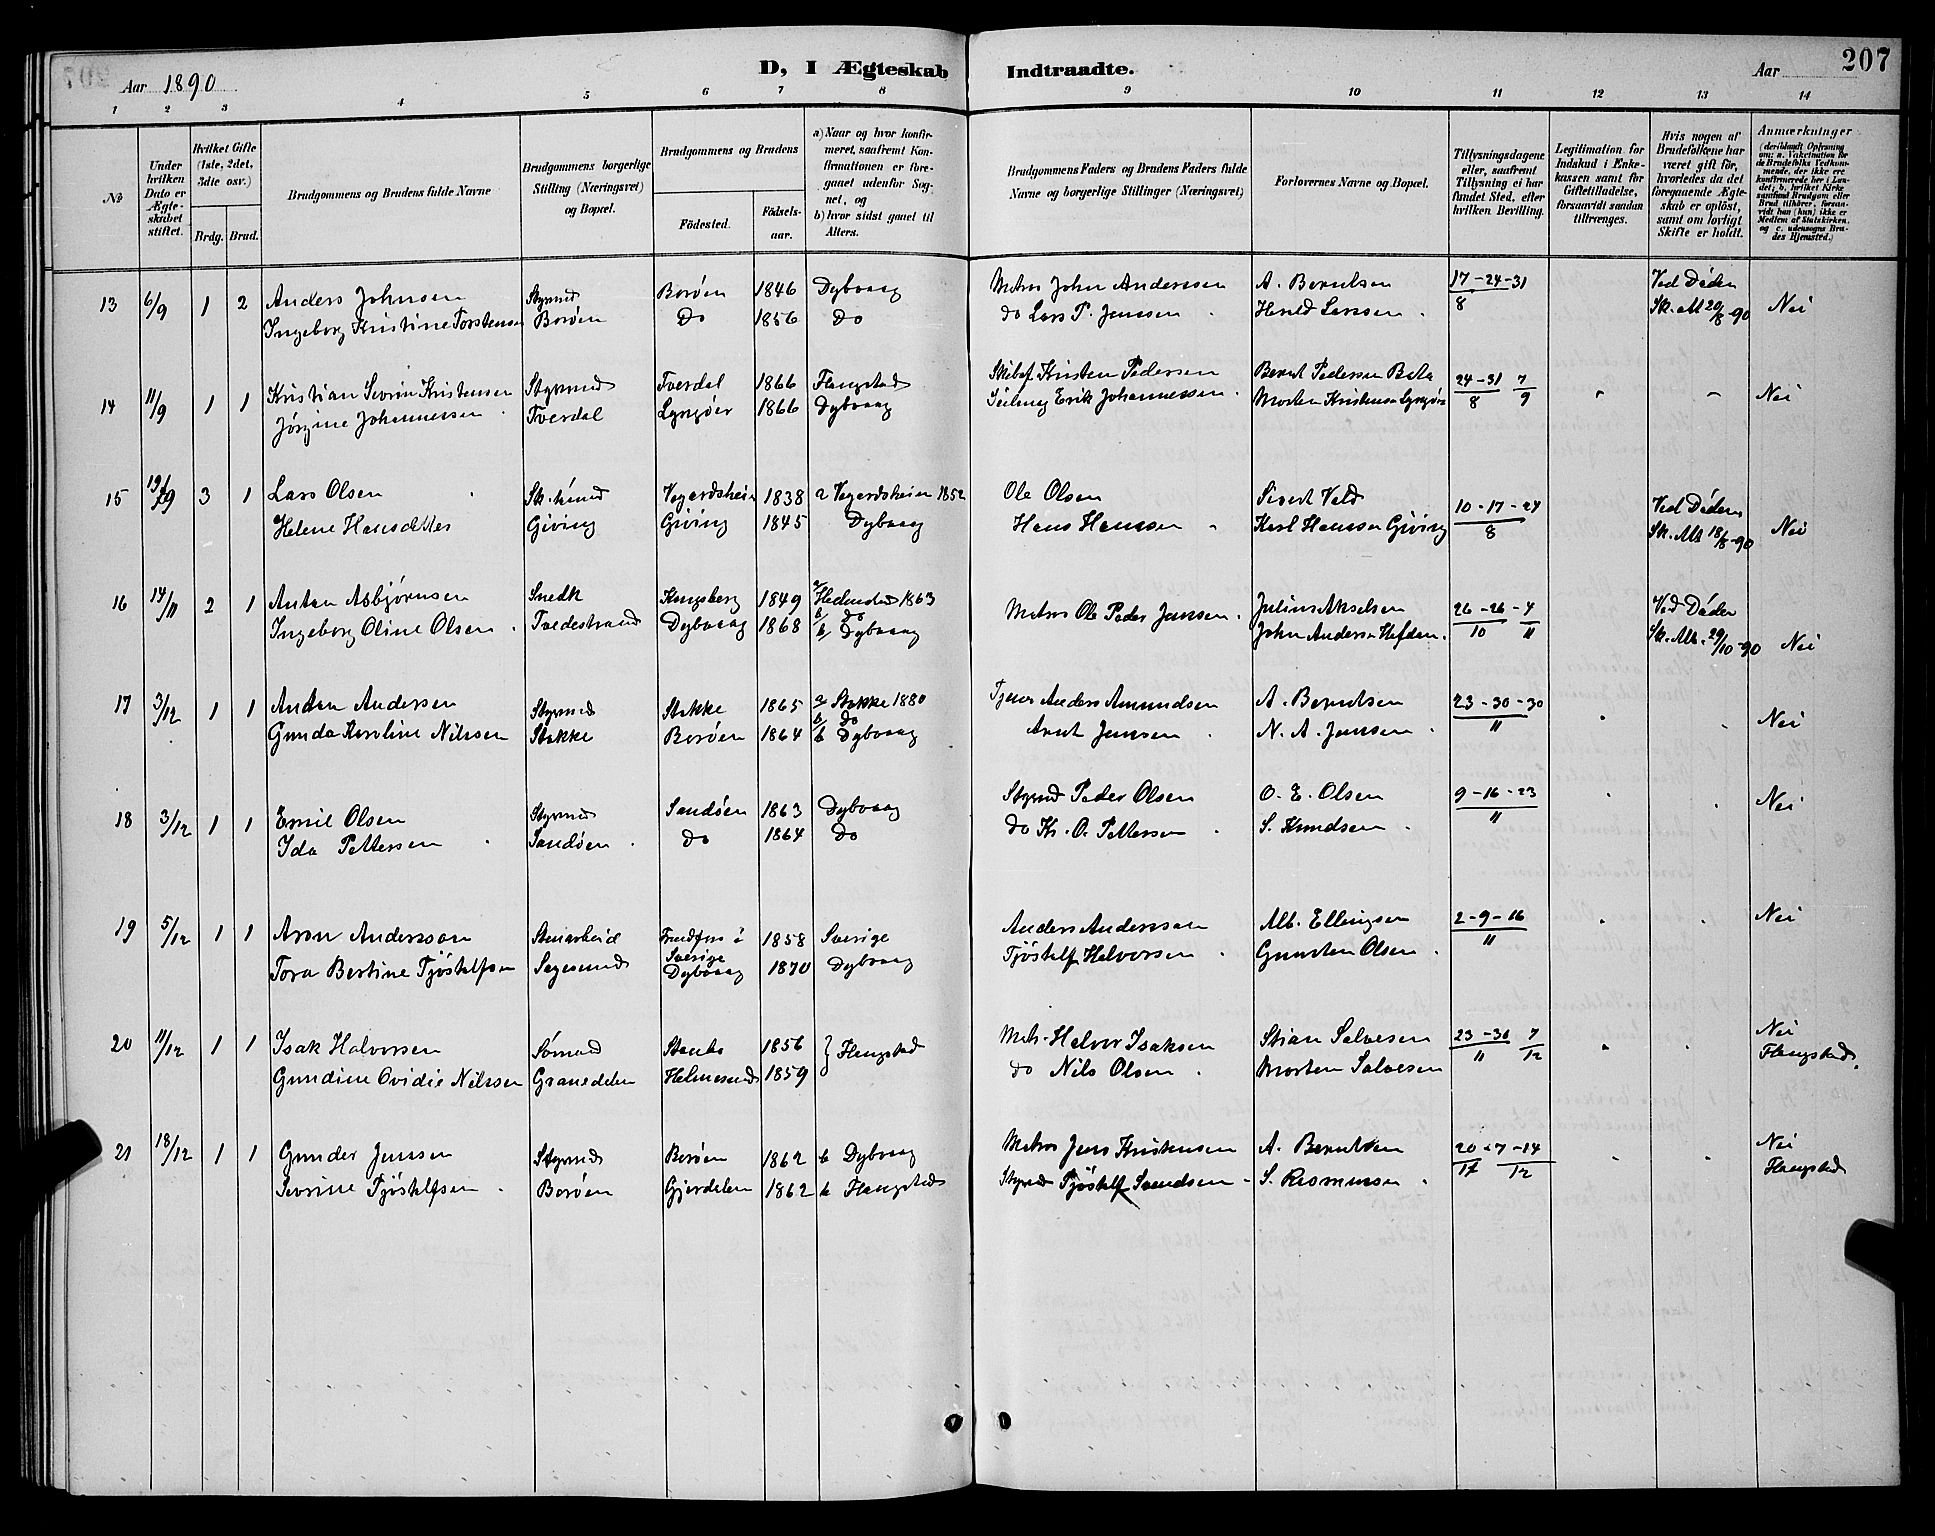 207
Aar 1890
D, I Ægteskab Indtraadte.
Aar
1 2 3 4 5 6 7 8 9 10 11 12 13 14
No
Under hvilken Dato er Ægteskabet stiftet.
Hvilket Gifte (1ste, 2det, 3die osv.)
Brdg. Brud.
Brudgommens og Brudens fulde Navne
Brudgommens borgerlige Stilling (Næringsvei) og Bopæl.
Brudgommens og Brudens
Födested. Födselsaar.
a) Naar og hvor konfirmeret, saafremt Konfirmationen er foregaaet udenfor Sognet, og
b) hvor sidst gaaet til Alters.
Brudgommens Faders og Brudens Faders fulde Navne og borgerlige Stillinger (Næringsvei)
Forlovernes Navne og Bopæl.
Tillysningsdagene eller, saafremt Tillysning ei har fundet Sted, efter hvilken Bevilling.
Legitimation for Indskud i Enkekassen samt for Giftetilladelse, forsaavidt saadan tiltrænges.
Hvis nogen af Brudefolkene har været gift för, hvorledes da det foregaaende Ægteskab er oplöst, samt om lovligt Skifte er holdt.
Anmærkninger (deriblandt Oplysning om: a. Vakcination for de Brudefolks Vedkommende, der ikke ere konfirmerede her i Landet; b. hvilket Kirkesamfund Brudgom eller Brud tilhörer, forsaavidt han (hun) ikke er Medlem af Statskirken, og c. udensogns Brudes Hjemsted.)
13 6/9 1 2 Anders Johnsen Styrmd Borøen 1846 Dybvaag Matros John Anderssen A. Berntsen 17-24-31/8 Ved Døden
Ingeborg Kristine Torstensen Borøen Do 1856 Do do Lars P. Jenssen Harald Larssen Sk. Att 20/8-90 Nei
14 11/9 1 1 Kristian Severin Kristensen Styrmd Tverdal 1866 Flangstad Skibsf Kristen Pedersen Bernt Pedersen 24-31/8 7/9 Nei
Jørgine Johannessen Tverdal Lyngøer 1866 Dybvaag Erik Johannessen Morten Kristensen Lyngør
15 19/9 3 1 Lars Olsen Vegardsheien 1838 a Vegardsheien 1852 Ole Olsen Sivert Vold 10-17-24/8 Ved Døden
Helene Hansdatter Giving Giving 1845 Dybvaag Hans Hanssen Karl Hanssen Giving Sk. Att 18/8-90 Nei
16 14/11 2 1 Anton Asbjørnsen Snedk Kongsberg 1849 a/ 1863 Julius Akselsen 26-26-4/10 11 Ved Døden
b/ do Matros Ole Peder Janssen
Ingeborg Oline Olsen Tvedestrand Dybvaag 1868 b/ Dybvaag John Anderssen Sk. Att. 29/10-90 Nei
17 3/12 1 1 Anton Andersen Styrmd Stokke 1865 a Stokke 1880 Tjener Anders Amundsen A. Berntsen 23-30-30/11 Nei
b/ do
Gunda Karoline Nilssen Stokke Borøen 1864 b Dybvaag Arnt Janssen N. A. Janssen
18 3/12 1 1 Emil Olsen Styrmd Sandøen 1863 Dybvaag Styrmd Peder Olsen O. E. Olsen 9-16-23/11 Nei
Ida Pettersen Sandøen Do 1864 Do do Kr. O. Pettersen S. Knudsen
19 5/12 1 1 Aron Andersson Stenarbeid i Sverige 1858 Sverige Anders Andersson Alb. Ellingsen 2-9-16/11 Nei
Tora Bertine Tjøstelfsen Sagesund Dybvaag 1870 Dybvaag Tjøstelf Halvorsen Gunsten Olsen
20 11/12 1 1 Isak Halvorsen Sømand 1856 } Flangstad Mats Halvor Isaksen Stian Salvesen 23-30/11 7/12 Nei
Gundine Ovidie Nilssen Granedalen Holmesund 1859 do Nils Olsen Morten Salvesen Flangstad
21 18/12 1 1 Gunder Jensen Styrmd Borøen 1862 b Dybvaag Matros Jens Kristensen A. Berntsen 20-7-14/11 12 Nei
Severine Tjøstelfsen Borøen Gjerdalen 1862 b Flangstad Styrmd Tjøstelf Svendsen S. Rasmussen Flangstad